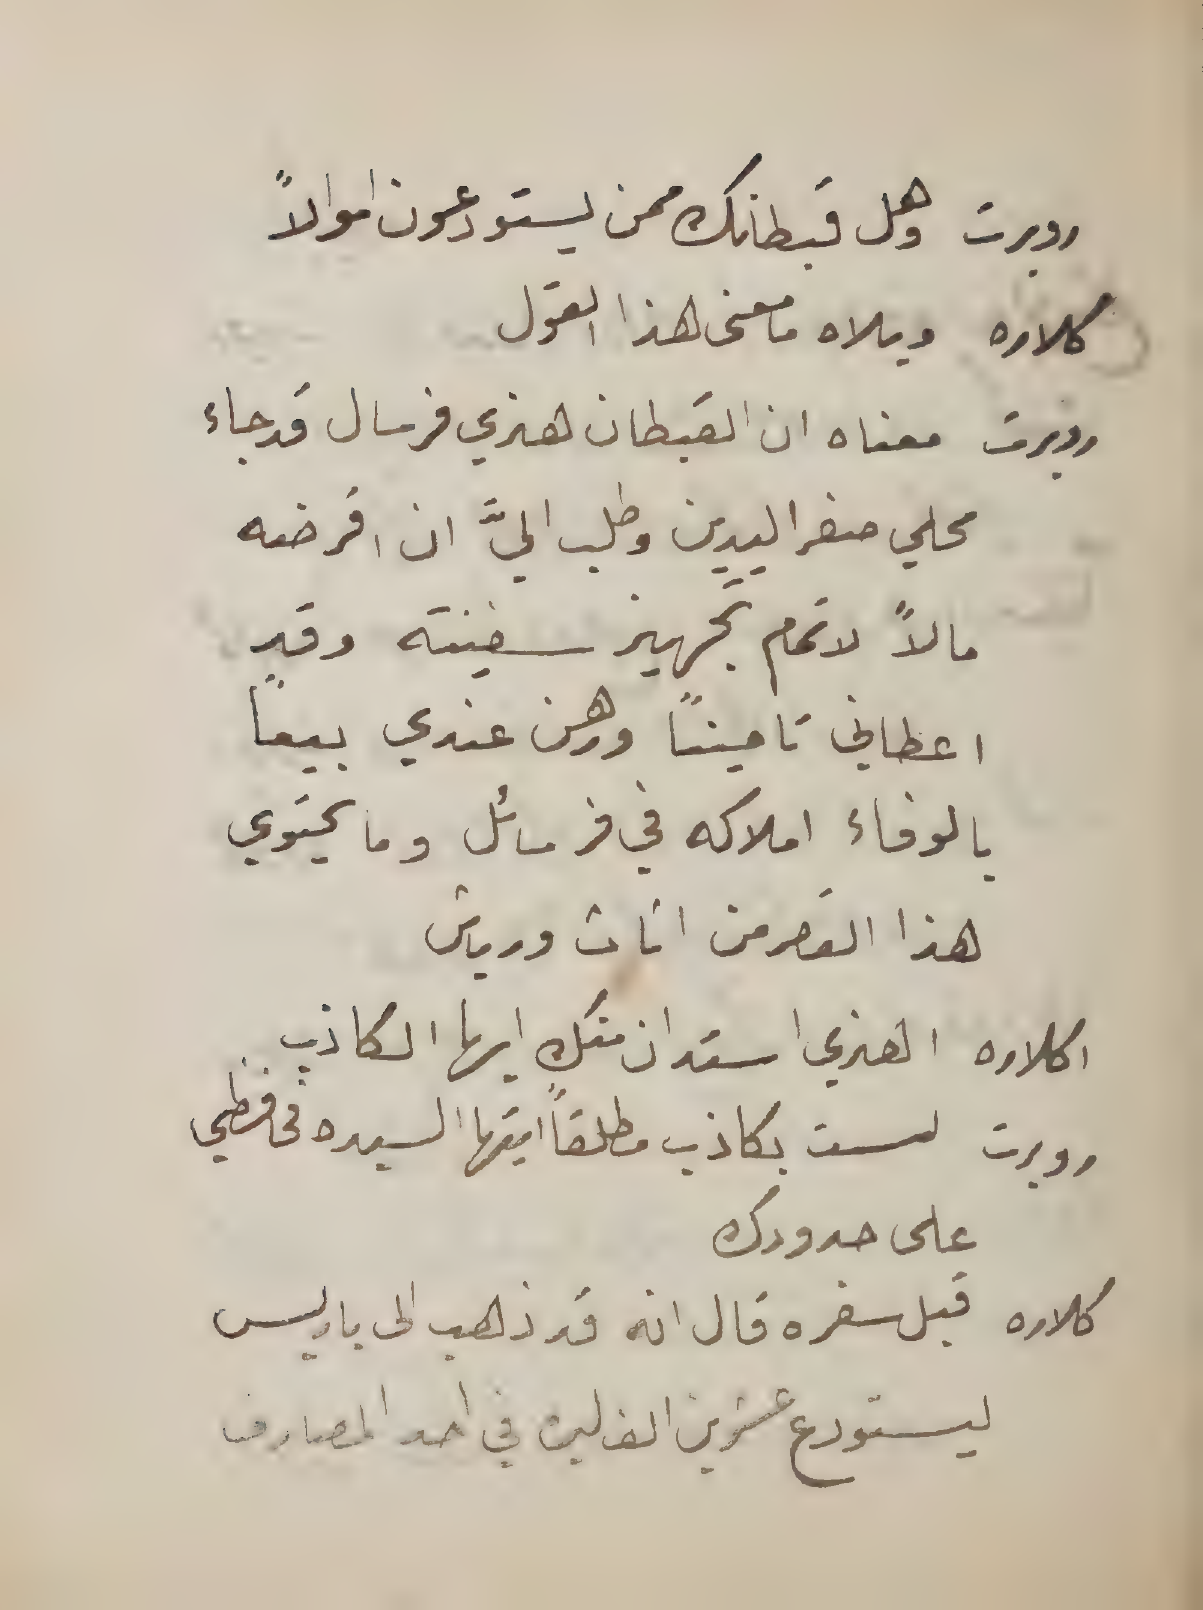 روبرت وهل قبطانك ممن يستودعون اموالاً
كلاره ويلاه ما معنى هذا القول
روبرت معناه ان القبطان هنري فرسال قد جاء
محلي صفر اليدين وطلب اليَّ ان اقرضه
مالاً لاتمام تجهيز سفينته وقد
اعطاني تاميناً ورهن عندي بيعاً
بالوفاء املاكه في فرسائل وما يحتوي
هذا القصر من اثاث ورياش
اكلاره الهنري استدان منك ايها الكاذب
روبرت لست بكاذب مطلقاً ايتها السيده فحافظي
على حدودك
كلاره قبل سفره قال انه قد ذهب الى باريس
ليستودع عشرين الف ليره في احد المصارف